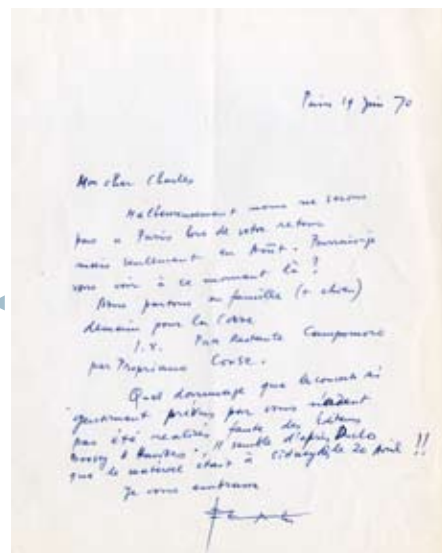 Paris 19 Juin 70
Mon cher Charles
Malheureusement nous ne serons
pas à Paris lors de votre retour
mais seulement en Août. Pourrais-je
vous voir à ce moment là ?
Nous partons en famille (+ chien)
demain pour la Corse
Poste Restante Campomoro
par Propriano Corse.
Quel dommage que les concerts si
gentiment prévus par vous n'aient
pas été réalisés faute des Editeurs
Boosey & Hawkes. Il semble d'après
que le matériel était à le 20 Avril !!
Je vous embrasse